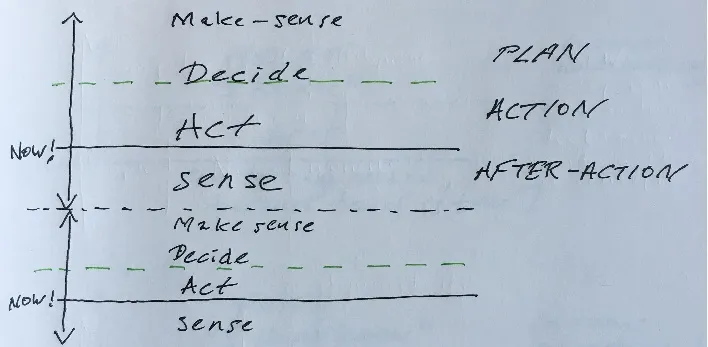 Make-sense
PLAN
Decide
ACTION
Act
NOW!
AFTER-ACTION
sense
Make sense
Decide
Act
NOW!
sense